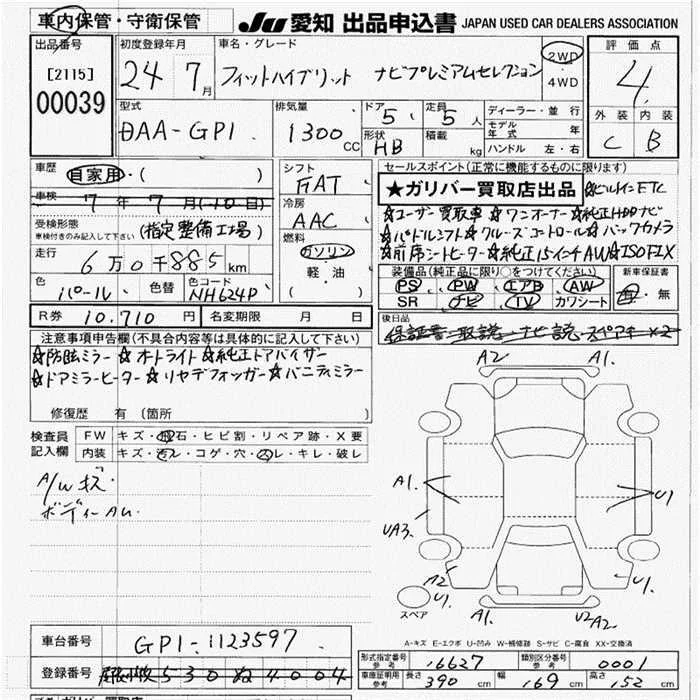 車内保管・守衛保管
JU 愛知 出品申込書 JAPAN USED CAR DEALERS ASSOCIATION
出品番号
[2115]
00039
初度登録年月
24 7月
車名・グレード
フィットハイブリット ナビプレミアムセレクション
2WD
・
4WD
評価点
4
外装 内装
C B
型式
DAA-GP1
排気量
1300 CC
ドア 5
定員 5人
形状 HB
積載 kg
ディーラー・並行
モデル年式 年
ハンドル 左・右
車歴
自家用・( )
車検
7年7月(10日)
受検形態
車検付きのみ記入して下さい
(指定整備工場)
走行
6万0千885km
色
パール
色替
色コード
NH624P
シフト
FAT
冷房
AAC
燃料
ガソリン
・
軽油
セールスポイント(正常に機能するものに限ります)
★ガリバー買取店出品 ☆ビルトインETC
☆ユーザー買取車 ☆ワンオーナー ☆純正HDDナビ
☆パドルシフト ☆クルーズコントロール ☆バックカメラ
☆前席シートヒーター ☆純正15インチAW ☆ISOFIX
装備品(純正品に限り○をつけてください)
PS PW エアB AW
SR ナビ TV カワシート
新車保証書
有・無
R券 10,710円
名変期限 月 日
後日品
保証書・取説・ナビ説・スペアキー×2
注意事項申告欄(不具合内容等は具体的に記入して下さい)
☆防眩ミラー ☆オートライト ☆純正ドアバイザー
☆ドアミラーヒーター ☆リヤデフォッガー ☆バニティミラー
修復歴 有(箇所
検査員
記入欄
FW キズ・飛石・ヒビ割・リペア跡・X要
内装 キズ・汚レ・コゲ・穴・スレ・キレ・破レ
A/Wキズ・
ボディーAU.
A2 A1.
A1. U1
UA3.
A2 U1. U1.
スペア
A1. U2 A2.
A-キズ E-エクボ U-凹み W-補修跡 S-サビ C-腐食 XX-交換済
車台番号
GP1-1123597
登録番号
530 ぬ 4004
形式指定番号
参考
16627
類別区分番号
参考
0001
車庫証明用
参考
長さ 390 cm
幅 169 cm
高さ 152 cm